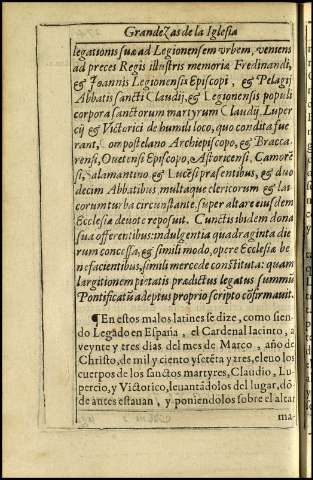 Grandezas de la Iglesia
legationis suæ ad Legionensem vrbem, veniens
ad preces Regis illustris memoriæ Ferdinandi,
& Ioannis Legionensis Episcopi, & Pelagij
Abbatis sancti Claudij, & Legionensis populi
corpora sanctorum martyrum Claudij Luper
cij & Victorici de humili loco, quo condita fue
rant, Compostelano Archiepiscopo, & Bracca-
rensi, Ouetensi Episcopo, Astoricensi, Camorẽ
si, Salamantino & Lucẽsi præsentibus, & duo
decim Abbatibus, multaque clericorum & lai
corum turba circunstante, super altare eiusdem
Ecclesiæ deuote reposuit. Cunctis ibidem dona
sua offerentibus: indulgentia quadraginta die
rum concessa, & simili modo, opere Ecclesiæ be
nefacientibus, simili mercede constituta: quam
largitionem pietatis prædictus legatus summũ
Pontificatũ adeptus proprio scripto cõfirmauit.
¶ En estos malos latines se dize, como sien-
do Legado en España, el Cardenal Iacinto, a
veynte y tres dias del mes de Março, año de
Christo, de mil y ciento y setẽta y tres, eleuo los
cuerpos de los sanctos martyres, Claudio, Lu-
percio, y Victorico, leuantãdolos del lugar, dõ-
de antes estauan, y poniendolos sobre el altar
ma-